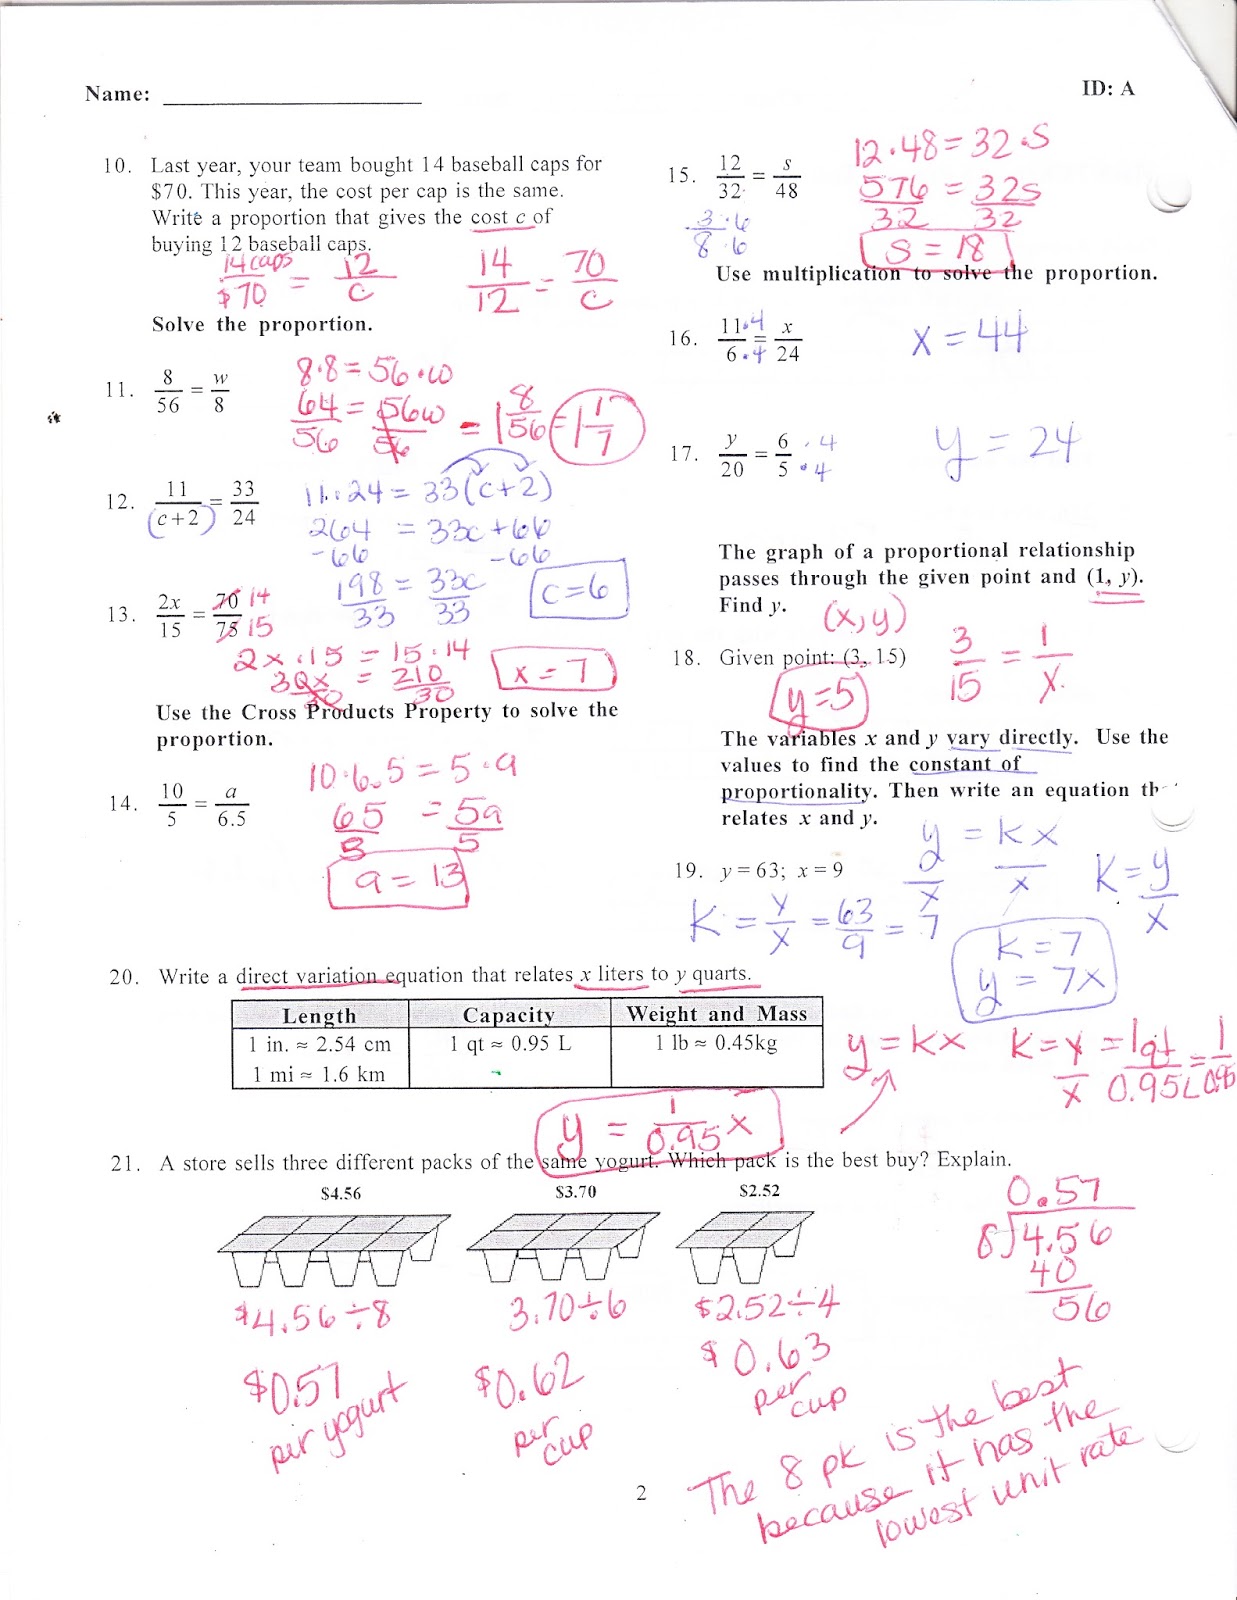 Name: ____________
ID: A
10. Last year, your team bought 14 baseball caps for
$70. This year, the cost per cap is the same.
Write a proportion that gives the cost c of
buying 12 baseball caps.
14 caps/$70 = 12/c    14/12 = 70/c
Solve the proportion.
11. 8/56 = w/8
8·8 = 56·w
64/56 = 56w/56 = 1 8/56 = 1 1/7
12. 11/(c+2) = 33/24
11·24 = 33(c+2)
264 = 33c+66
-66 -66
198/33 = 33c/33
c=6
13. 2x/15 = 70/75 14/15
2x·15 = 15·14
30x/30 = 210/30
x = 7
Use the Cross Products Property to solve the
proportion.
14. 10/5 = a/6.5
10·6.5 = 5·a
65/5 = 5a/5
a = 13
15. 12/32 = s/48
3·6/8·6
12·48 = 32·s
576/32 = 32s/32
s = 18
Use multiplication to solve the proportion.
16. 11·4/6·4 = x/24
x = 44
17. y/20 = 6/5 ·4/·4
y = 24
The graph of a proportional relationship
passes through the given point and (1, y).
Find y.
(x,y)
18. Given point: (3, 15)
y=5
3/15 = 1/y
The variables x and y vary directly. Use the
values to find the constant of
proportionality. Then write an equation th
relates x and y.
19. y = 63; x = 9
y/x = kx/x
K = y/x
K = y/x = 63/9 = 7
k = 7
y = 7x
20. Write a direct variation equation that relates x liters to y quarts.
Length Capacity Weight and Mass
1 in. ≈ 2.54 cm 1 qt ≈ 0.95 L 1 lb ≈ 0.45kg
1 mi ≈ 1.6 km
y = kx
K = y/x = 1qt/0.95L = 1/0.95
y = 1/0.95 x
21. A store sells three different packs of the same yogurt. Which pack is the best buy? Explain.
$4.56 $3.70 $2.52
$4.56÷8 3.70÷6 $2.52÷4
$0.57 $0.62 $0.63
per yogurt per cup per cup
0.57
8)4.56
40
56
The 8 pk is the best
because it has the
lowest unit rate
2